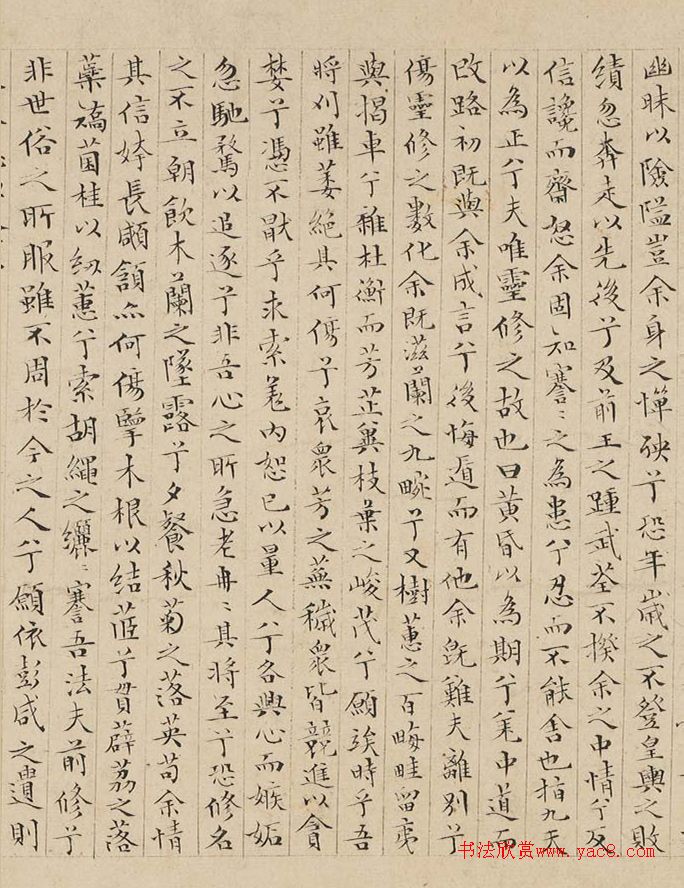 幽昧以險隘豈余身之憚殃兮恐年歲之不登皇輿之敗
績忽奔走以先後兮及前王之踵武荃不揆余之中情兮反
信讒而齋怒余固知謇〻之為患兮忍而不能舍也指九天
以為正兮夫唯靈修之故也曰黃昏以為期兮羌中道而
改路初既與余成言兮後悔遁而有他余既難夫離別兮
傷靈修之數化余既滋蘭之九畹兮又樹蕙之百畮畦留夷
與揭車兮雜杜衡而芳芷冀枝葉之峻茂兮願竢時乎吾
將刈雖萎絕其何傷兮哀衆芳之蕪穢衆皆競進以貪
婪兮憑不猒乎求索羌內恕己以量人兮各興心而嫉妬
忽馳騖以追逐兮非吾心之所急老冉〻其將至兮恐修名
之不立朝飲木蘭之墜露兮夕餐秋菊之落英苟余情
其信姱長顑頷亦何傷擥木根以結茝兮貫薜荔之落
蘂矯菌桂以紉蕙兮索胡繩之纚〻謇吾法夫前修兮
非世俗之所服雖不周於今之人兮願依彭咸之遺則
书法欣赏www.yac8.com